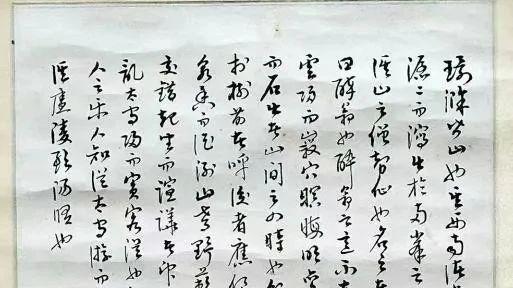 環滁皆山也其西南諸
潺〻而瀉出於兩峯之
誰山之僧智仙也名之者
曰醉翁也醉翁之意不在
雲歸而巖穴暝晦明變
而石出者山間之四時也
於樹前者呼後者應傴
泉香而酒洌山肴野蔌
交錯起坐而諠譁者眾
亂太守歸而賓客從也
人之樂人知從太守游而
誰廬陵歐陽脩也